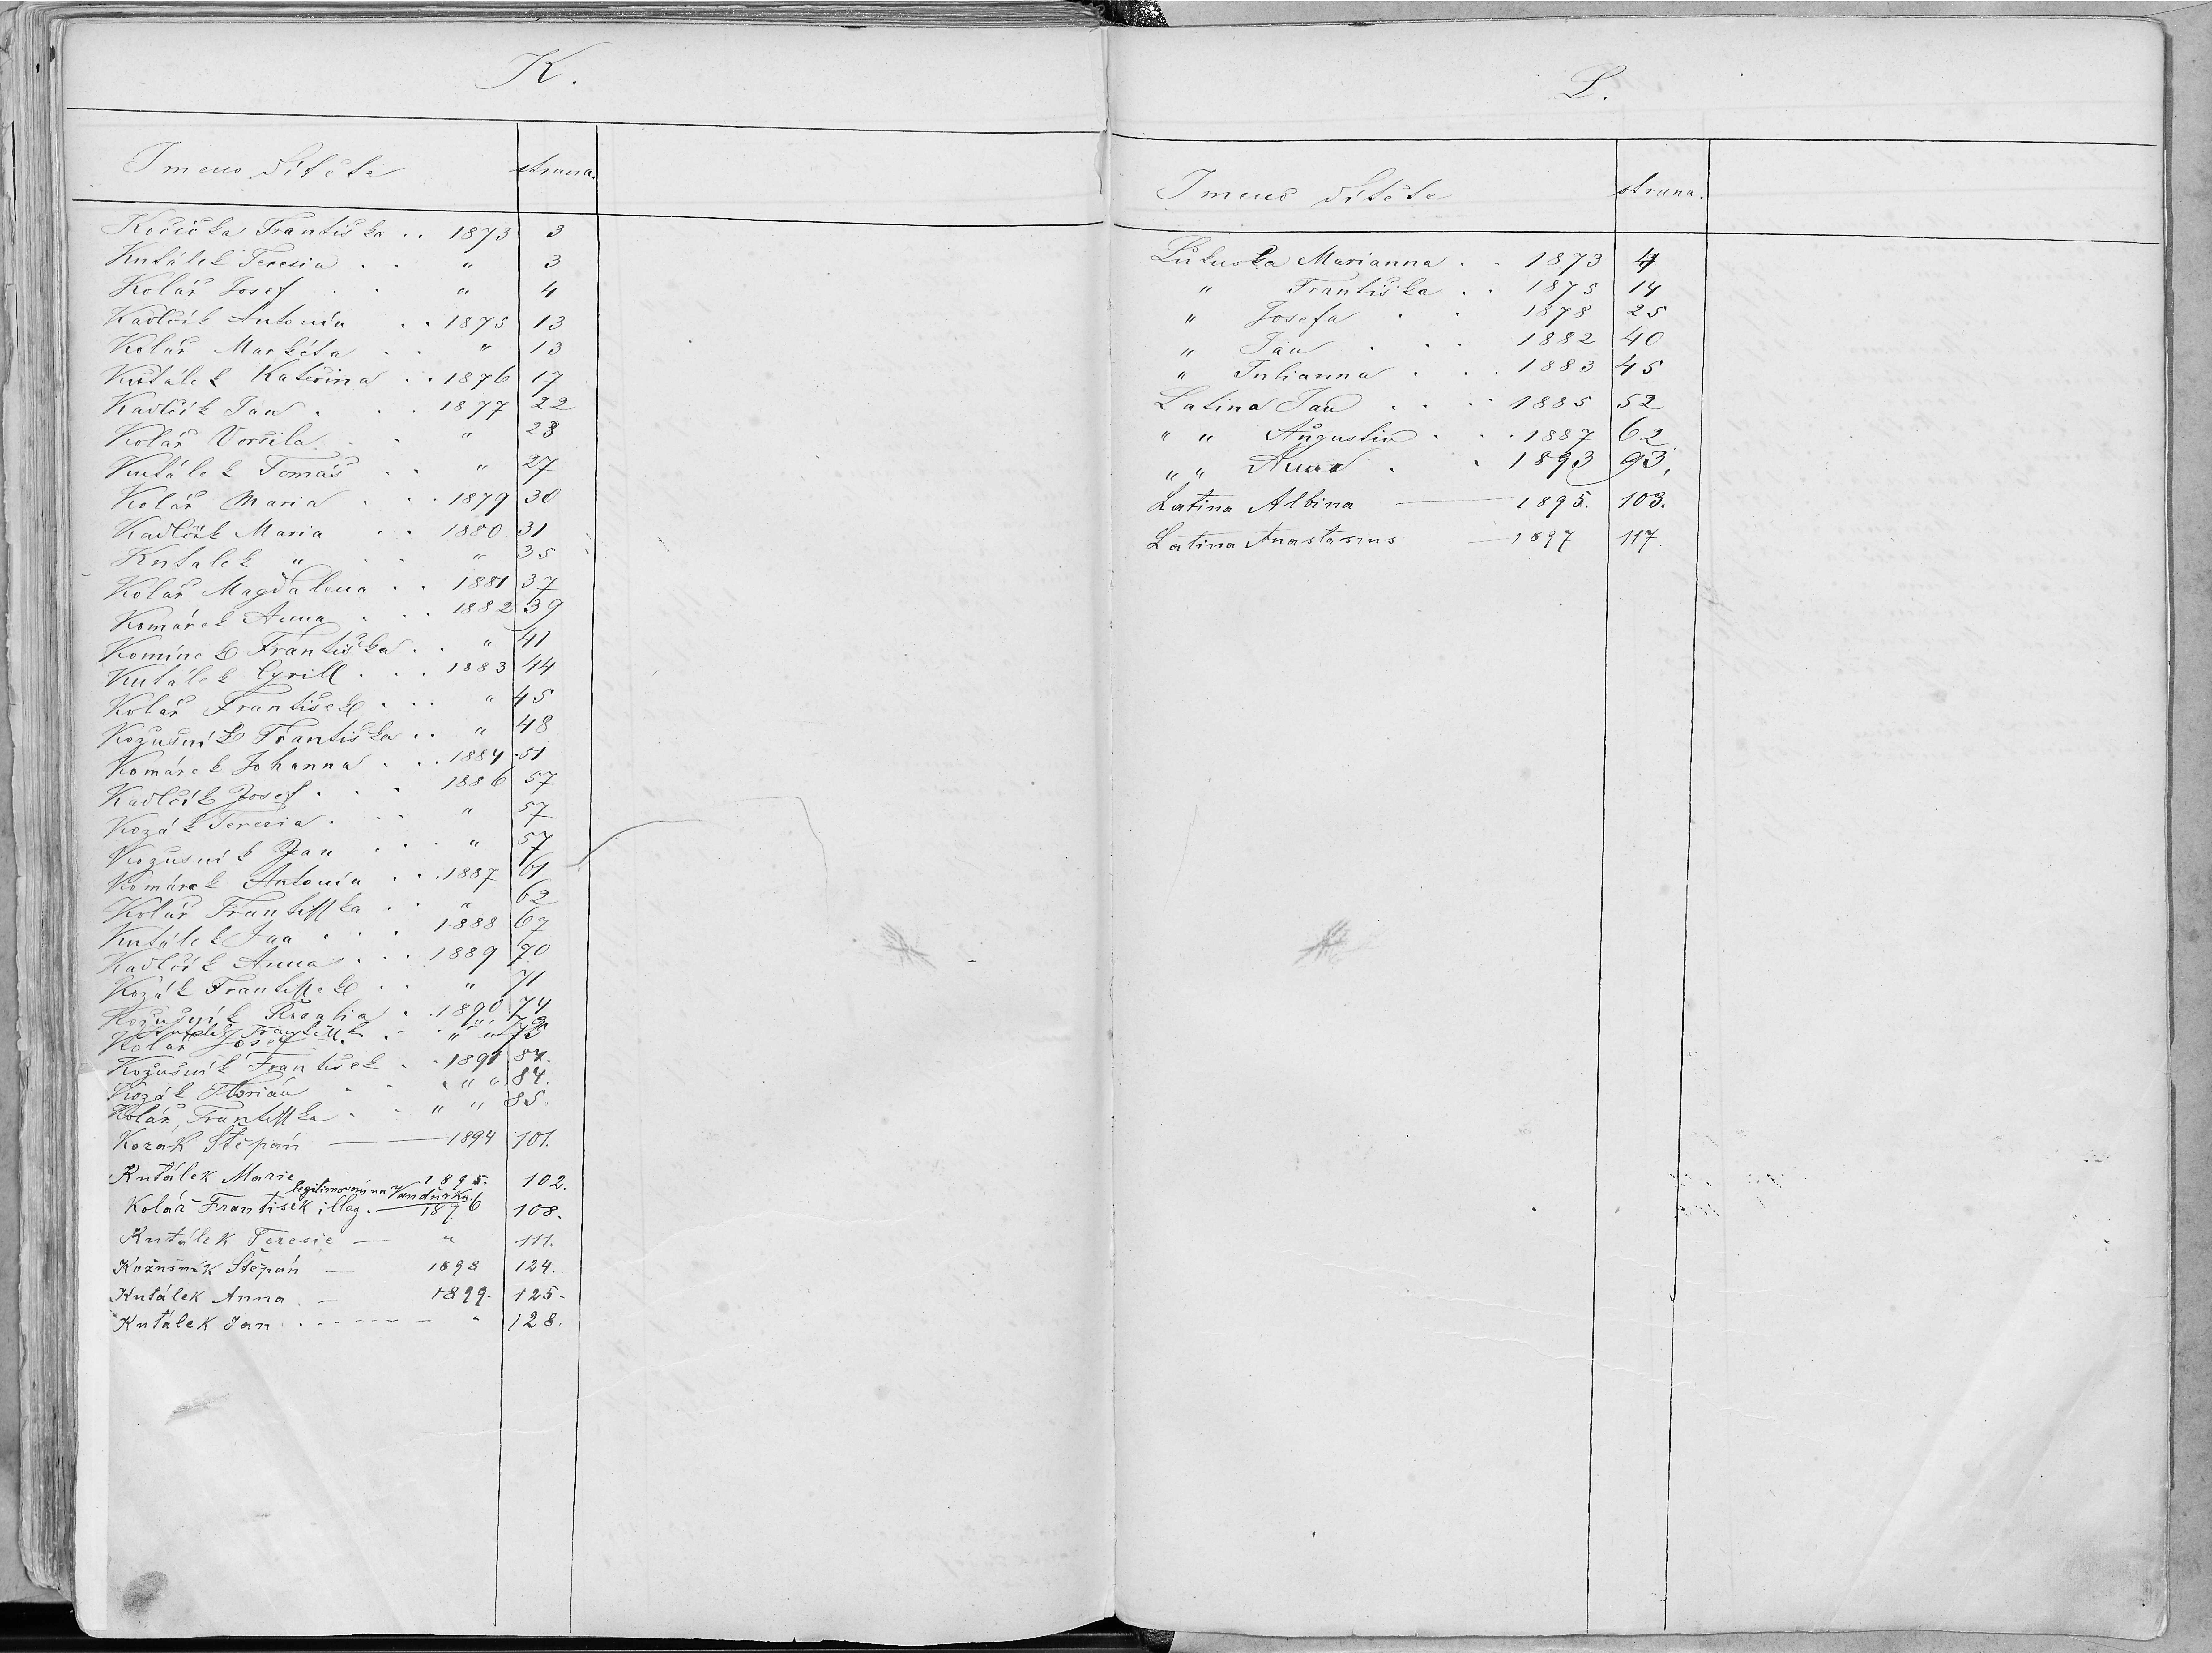 K.
Jmeno dítěte strana.
Kočička Františka . . 1873 3
Kutálek Teresia . . " 3
Kolář Josef . . " 4
Kadlčík Antonín . . 1875 13
Kolář Markéta . . " 13
Kutálek Kateřina . . 1876 17
Kadlčík Jan . . . 1877 22
Kolář Voršila . . " 23
Kutálek Tomáš . . " 27
Kolář Maria . . . 1879 30
Kadlčík Maria . . 1880 31
Kutalek " . . " 35
Kolář Magdalena . . 1881 37
Komárek Anna . . . 1882 39
Komínek Františka . . " 41
Kutálek Cyrill . . . 1883 44
Kolář František . . . " 45
Kožušník Františka . . " 48
Komárek Johanna . . . 1884 51
Kadlčík Josef . . . 1886 57
Kozák Teresia . . . " 57
Kožušník Jan . . . " 57
Komárek Antonín . . . 1887 61
Kolář Františka . . " 62
Kutálek Jan . . . 1888 67
Kadlčík Anna . . . 1889 70
Kozák František . . " 71
Kožušník . 1890 74
Kutálek Františka " "
Kolář Josef . . " "
Kožušník František . . 1891 84.
Kozák Florián . . " " 84.
Kolář, Františka . . " " 85.
Kozák Štěpán — 1894 101.
Kutálek Marie 1895. 102.
legitimovaný na Vandůrka.
Kolář František illeg. — 1896 108.
Kutálek Teresie — " 111.
Kožušník Štěpán — 1898 124.
Kutálek Anna . — 1899. 125.
Kutálek Jan . - - - - " 128.
L.
Jmeno dítěte strana.
Marianna . . 1873 4
" Františka . . 1875 14
" Josefa . . 1878 25
" Jan . . . 1882 40
" Julianna . . . 1883 45
Latina Jan . . . 1885 52
" " Augustin . . . 1887 62
" " Anna . . 1893 93.
Latina Albina — 1895. 103.
Latina Anastasius — 1897 117.